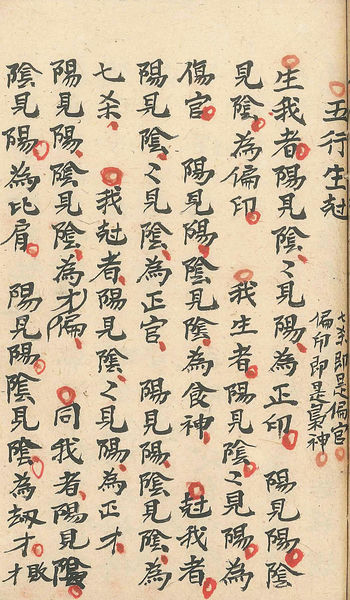 五行生尅
七杀即是偏官
偏印即是梟神
生我者陽見陰々見陽為正印 陽見陽陰
見陰為偏印 我生者陽見陰々見陽為
傷官 陽見陽陰見陰為食神 尅我者
陽見陰々見陽為正官 陽見陽陰見陰為
七杀 我尅者陽見陰々見陽為正才
陽見陽陰見陰為才偏 同我者陽見陰
陰見陽為比肩 陽見陽陰見陰為刼才敗才